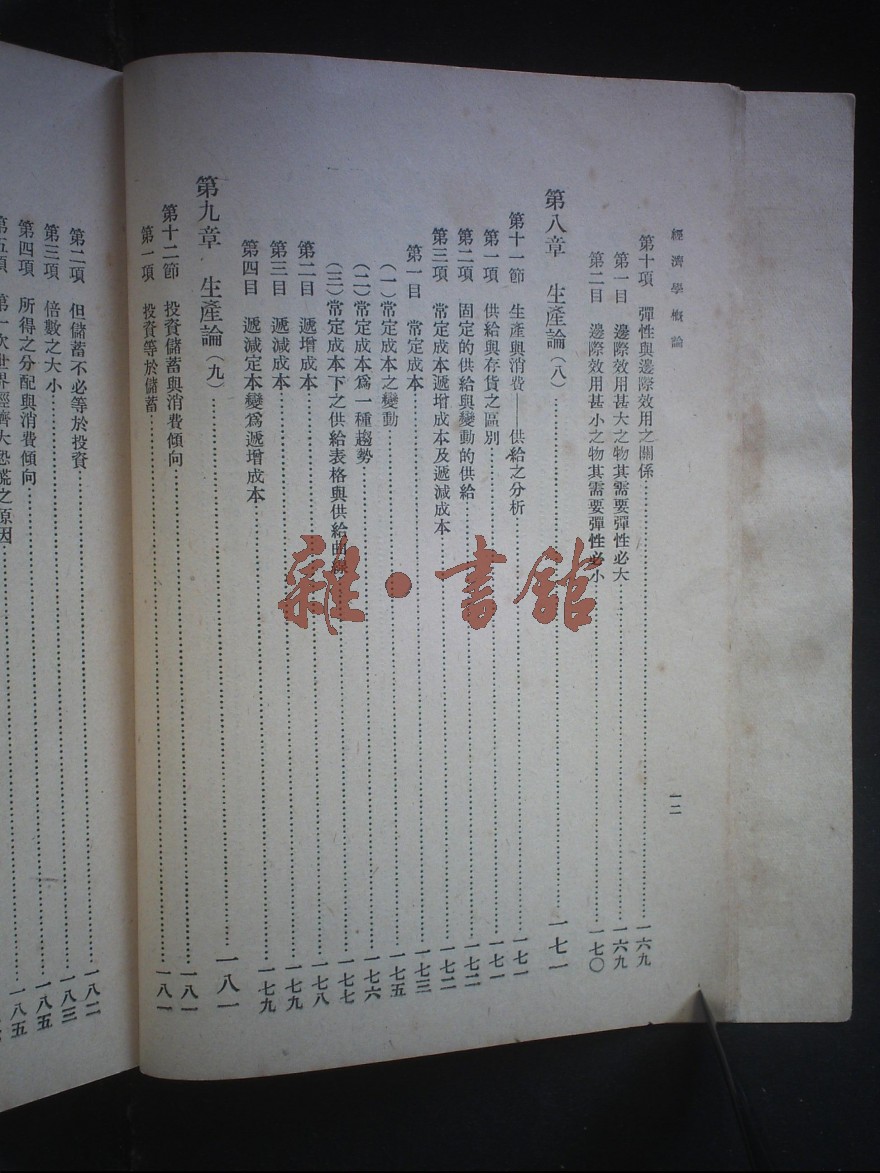 經濟學概論
一二
第十項　彈性與邊際效用之關係……一六九
第一目　邊際效用甚大之物其需要彈性必大……一六九
第二目　邊際效用甚小之物其需要彈性必小……一七〇
第八章　生產論（八）……一七一
第十一節　生產與消費——供給之分析……一七一
第一項　供給與存貨之區別……一七一
第二項　固定的供給與變動的供給……一七二
第三項　常定成本遞增成本及遞減成本……一七二
第一目　常定成本……一七三
（一）常定成本之變動……一七五
（二）常定成本爲一種趨勢……一七六
（三）常定成本下之供給表格與供給曲線……一七七
第二目　遞增成本……一七八
第三目　遞減成本……一七九
第四目　遞減定本變爲遞增成本……一七九
第九章　生產論（九）……一八一
第十二節　投資儲蓄與消費傾向……一八一
第一項　投資等於儲蓄……一八一
第二項　但儲蓄不必等於投資……一八二
第三項　倍數之大小……一八三
第四項　所得之分配與消費傾向……一八五
第五項　第一次世界經濟大恐慌之原因……一八五
雜·書館